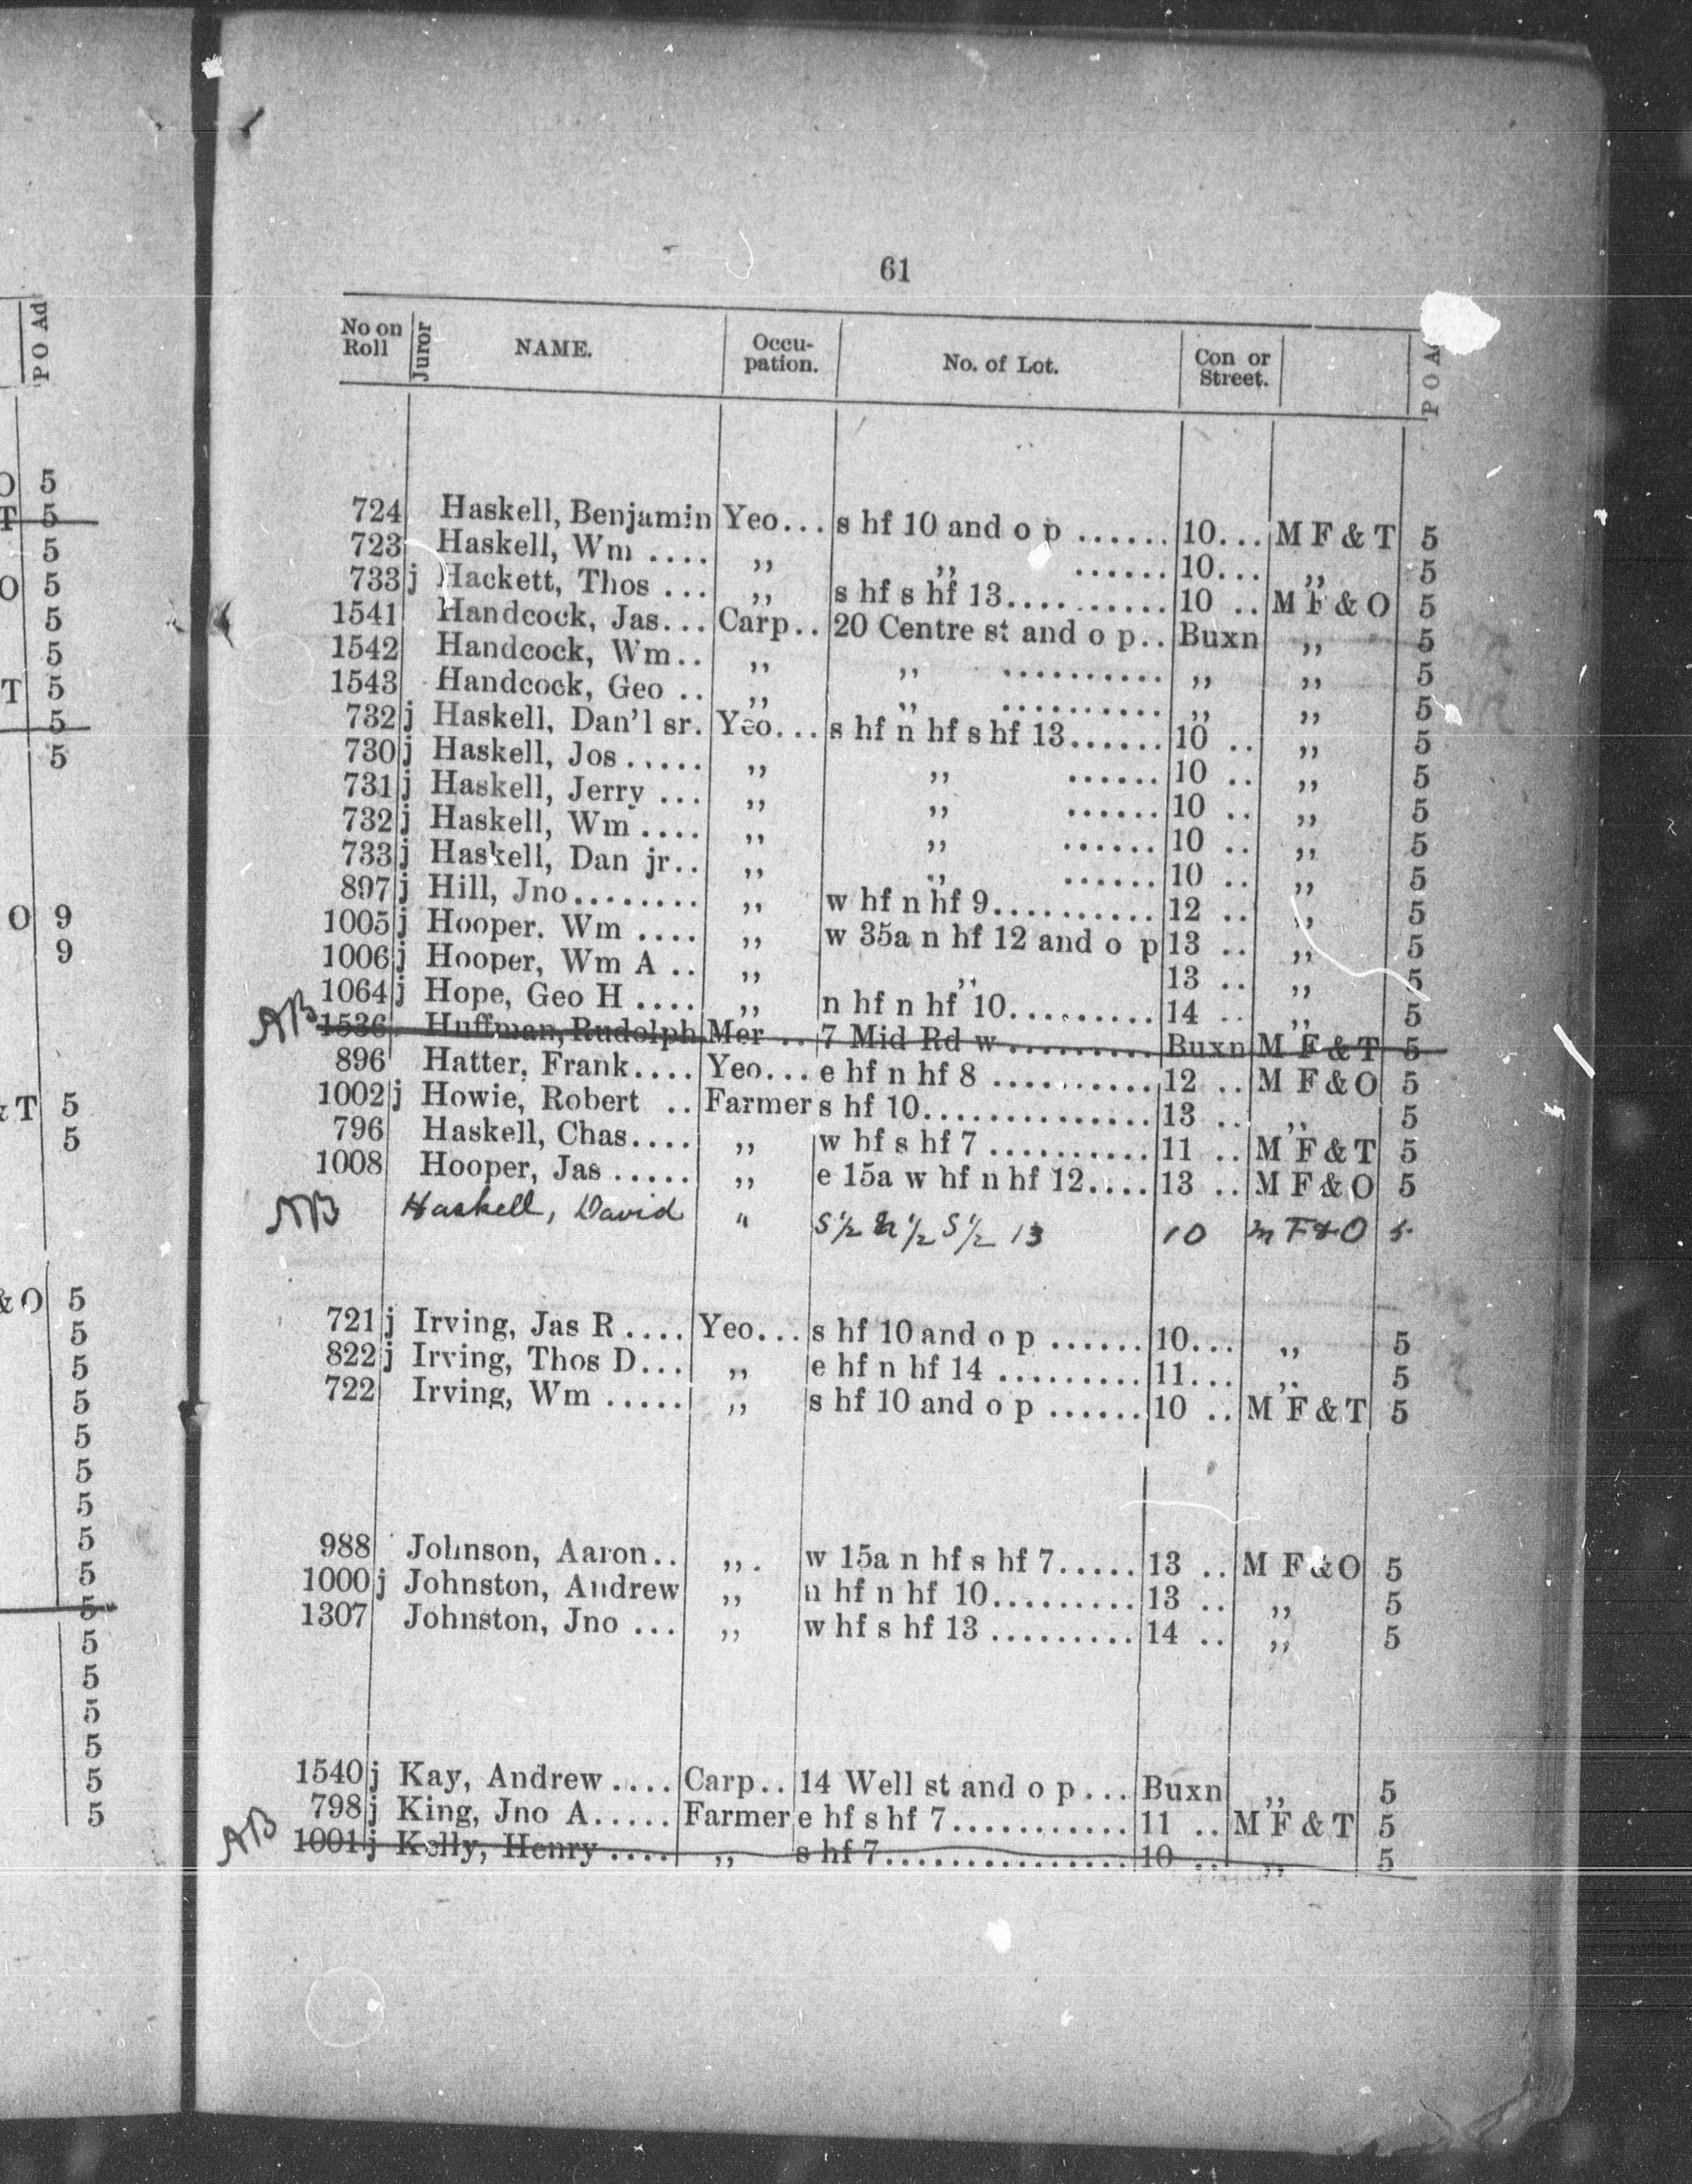 61
No on Roll | Juror | NAME. | Occu-pation. | No. of Lot. | Con or Street. | | P O Ad
724 Haskell, Benjamin Yeo... s hf 10 and o p ...... 10... M F & T 5
723 Haskell, Wm .... ,, ,, ...... 10... ,, 5
733 j Hackett, Thos ... ,, s hf s hf 13.......... 10 .. M F & O 5
1541 Handcock, Jas... Carp.. 20 Centre st and o p.. Buxn ,, 5
1542 Handcock, Wm.. ,, ,, .......... ,, ,, 5
1543 Handcock, Geo .. ,, ,, .......... ,, ,, 5
732 j Haskell, Dan'l sr. Yeo... s hf n hf s hf 13...... 10 .. ,, 5
730 j Haskell, Jos ..... ,, ,, ...... 10 .. ,, 5
731 j Haskell, Jerry ... ,, ,, ...... 10 .. ,, 5
732 j Haskell, Wm .... ,, ,, ...... 10 .. ,, 5
733 j Haskell, Dan jr.. ,, ,, ...... 10 .. ,, 5
897 j Hill, Jno........ ,, w hf n hf 9.......... 12 .. ,, 5
1005 j Hooper. Wm .... ,, w 35a n hf 12 and o p 13 .. ,, 5
1006 j Hooper, Wm A .. ,, ,, 13 .. ,, 5
1064 j Hope, Geo H .... ,, n hf n hf 10......... 14 .. ,, 5
AB 1536 Huffman, Rudolph Mer .. 7 Mid Rd w ......... Buxn M F & T 5
896 Hatter, Frank.... Yeo... e hf n hf 8 .......... 12 .. M F & O 5
1002 j Howie, Robert .. Farmer s hf 10.............. 13 .. ,, 5
796 Haskell, Chas.... ,, w hf s hf 7 .......... 11 .. M F & T 5
1008 Hooper, Jas ..... ,, e 15a w hf n hf 12.... 13 .. M F & O 5
AB Haskell, David " S ½ N ½ S ½ 13 10 M F & O 5
721 j Irving, Jas R .... Yeo... s hf 10 and o p ...... 10... ,, 5
822 j Irving, Thos D... ,, e hf n hf 14 ......... 11... ,, 5
722 Irving, Wm ..... ,, s hf 10 and o p ...... 10 .. M F & T 5
988 Johnson, Aaron.. ,, w 15a n hf s hf 7..... 13 .. M F & O 5
1000 j Johnston, Andrew ,, n hf n hf 10......... 13 .. ,, 5
1307 Johnston, Jno ... ,, w hf s hf 13 ......... 14 .. ,, 5
1540 j Kay, Andrew .... Carp.. 14 Well st and o p... Buxn ,, 5
798 j King, Jno A..... Farmer e hf s hf 7........... 11 .. M F & T 5
AB 1001 j Kelly, Henry .... ,, s hf 7............... 10 .. ,, 5
P O Ad
O 5
T 5
5
O 5
5
5
T 5
5
5
O 9
9
& T 5
5
& O 5
5
5
5
5
5
5
5
5
5
5
5
5
5
5
5